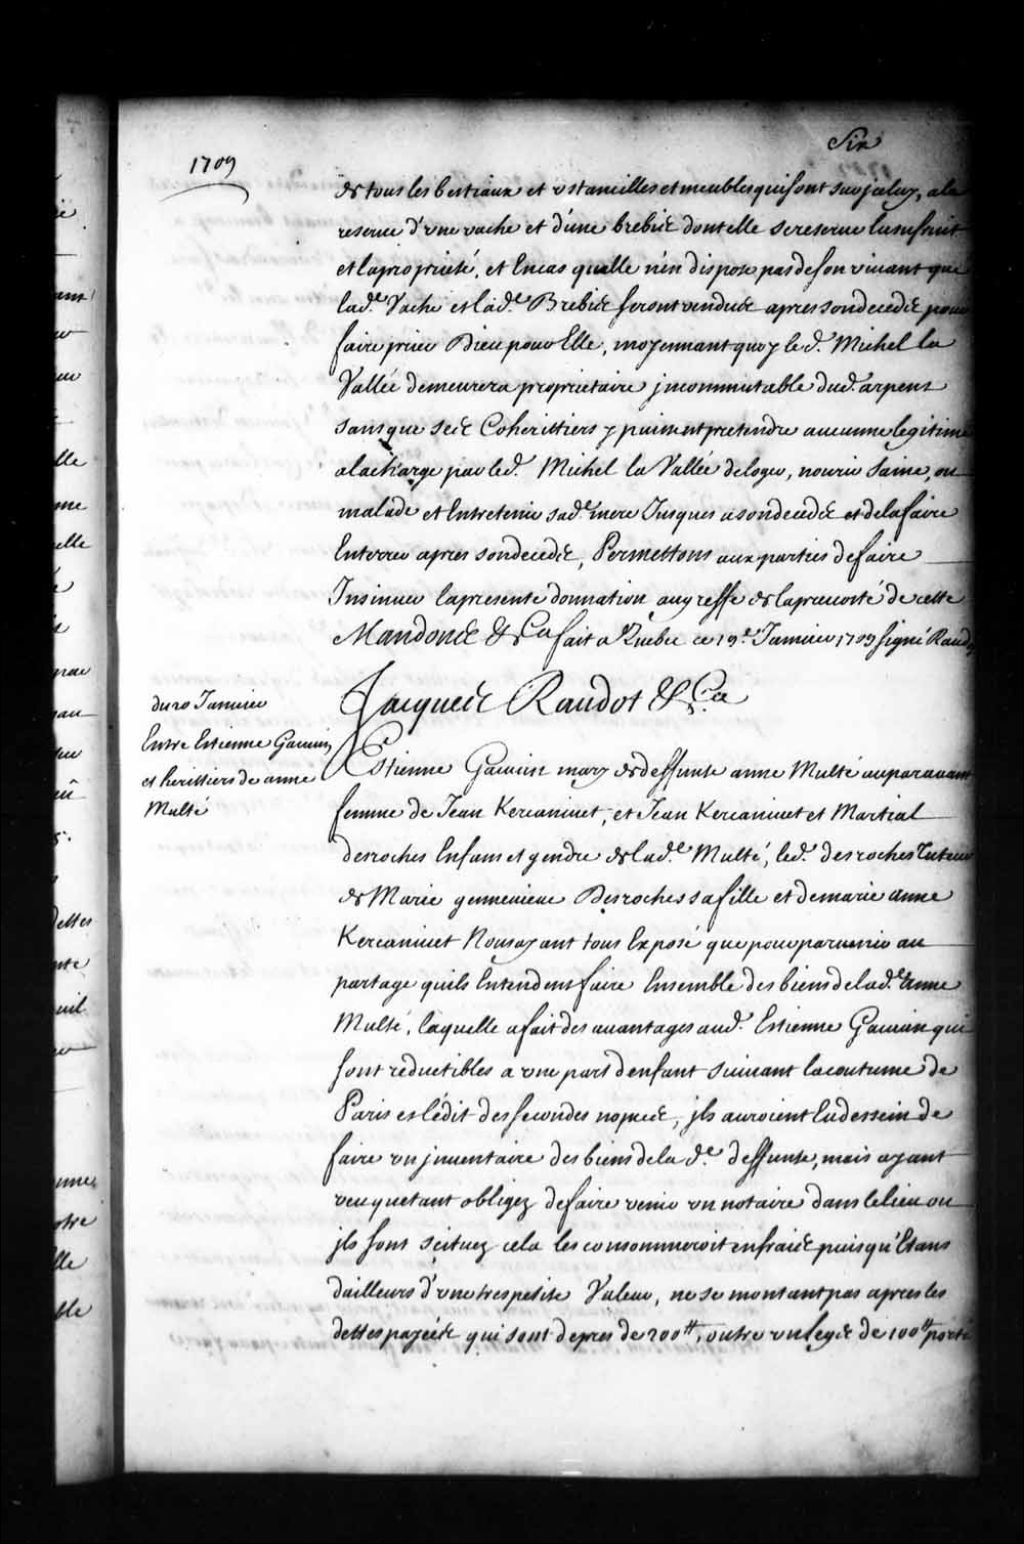 1709
Six
de tous les bestiaux et ustancilles et meubles qui sont sur jceluy, a la
reserve d'une vache et d'une brebis dont elle se reserve l'usufruit
et la proprieté, et en cas qu'elle n'en dispose pas de son vivant que
lad.e Vache et lad.e Brebis seront vendues apres son decedz pour
faire prier Dieu pour Elle, moyennant quoy led. Michel la
Vallée demeurera proprietaire jncommutable dud. arpent
sans que ses Coherittiers y puissent pretendre aucunne legitime
a la charge par led. Michel la Vallée de loger, nourir saine, ou
malade et Entretenir sad.e mere Jusques a son decedz et de la faire
Enterrer apres son decedz, Permettons aux parties de faire
Insinuer la presente donnation au greffe de la prevosté de cette
Mandons &ca fait a Quebec ce 19.e Janvier 1709 signé Raudot
Jacques Raudot &ca
du 20 Janvier
Entre Estienne Gauvin
et heritiers de anne
Multé
Estienne Gauvin mary de deffunte anne Multé auparavant
femme de Jean Kercaninet, et Jean Kercaninet et Martial
desroches Enfans et gendre de lad.e Multé, led. desroches Tuteur
de Marie genneuieue Desroches sa fille et de marie anne
Kercaninet Nous ayant tous Exposé que pour parvenir au
partage quils Entendent faire Ensemble des biens de lad.e Anne
Multé, laquelle a fait des auantages aud. Estienne Gauvin qui
sont reductibles a une part d'enfant suivant la coutume de
Paris et l'édit des secondes nopces, jls auroient Eu dessein de
faire un jnventaire des biens de la d.e deffunte, mais ayant
veu qu'etant obligez de faire venir un notaire dans le lieu ou
jls sont scituez cela les consommeroit en frais puisqu'Etans
dailleurs d'une tres petite Valeur, ne se montant pas apres les
dettes payées qui sont de pres de 200tt, outre un legs de 100tt porté